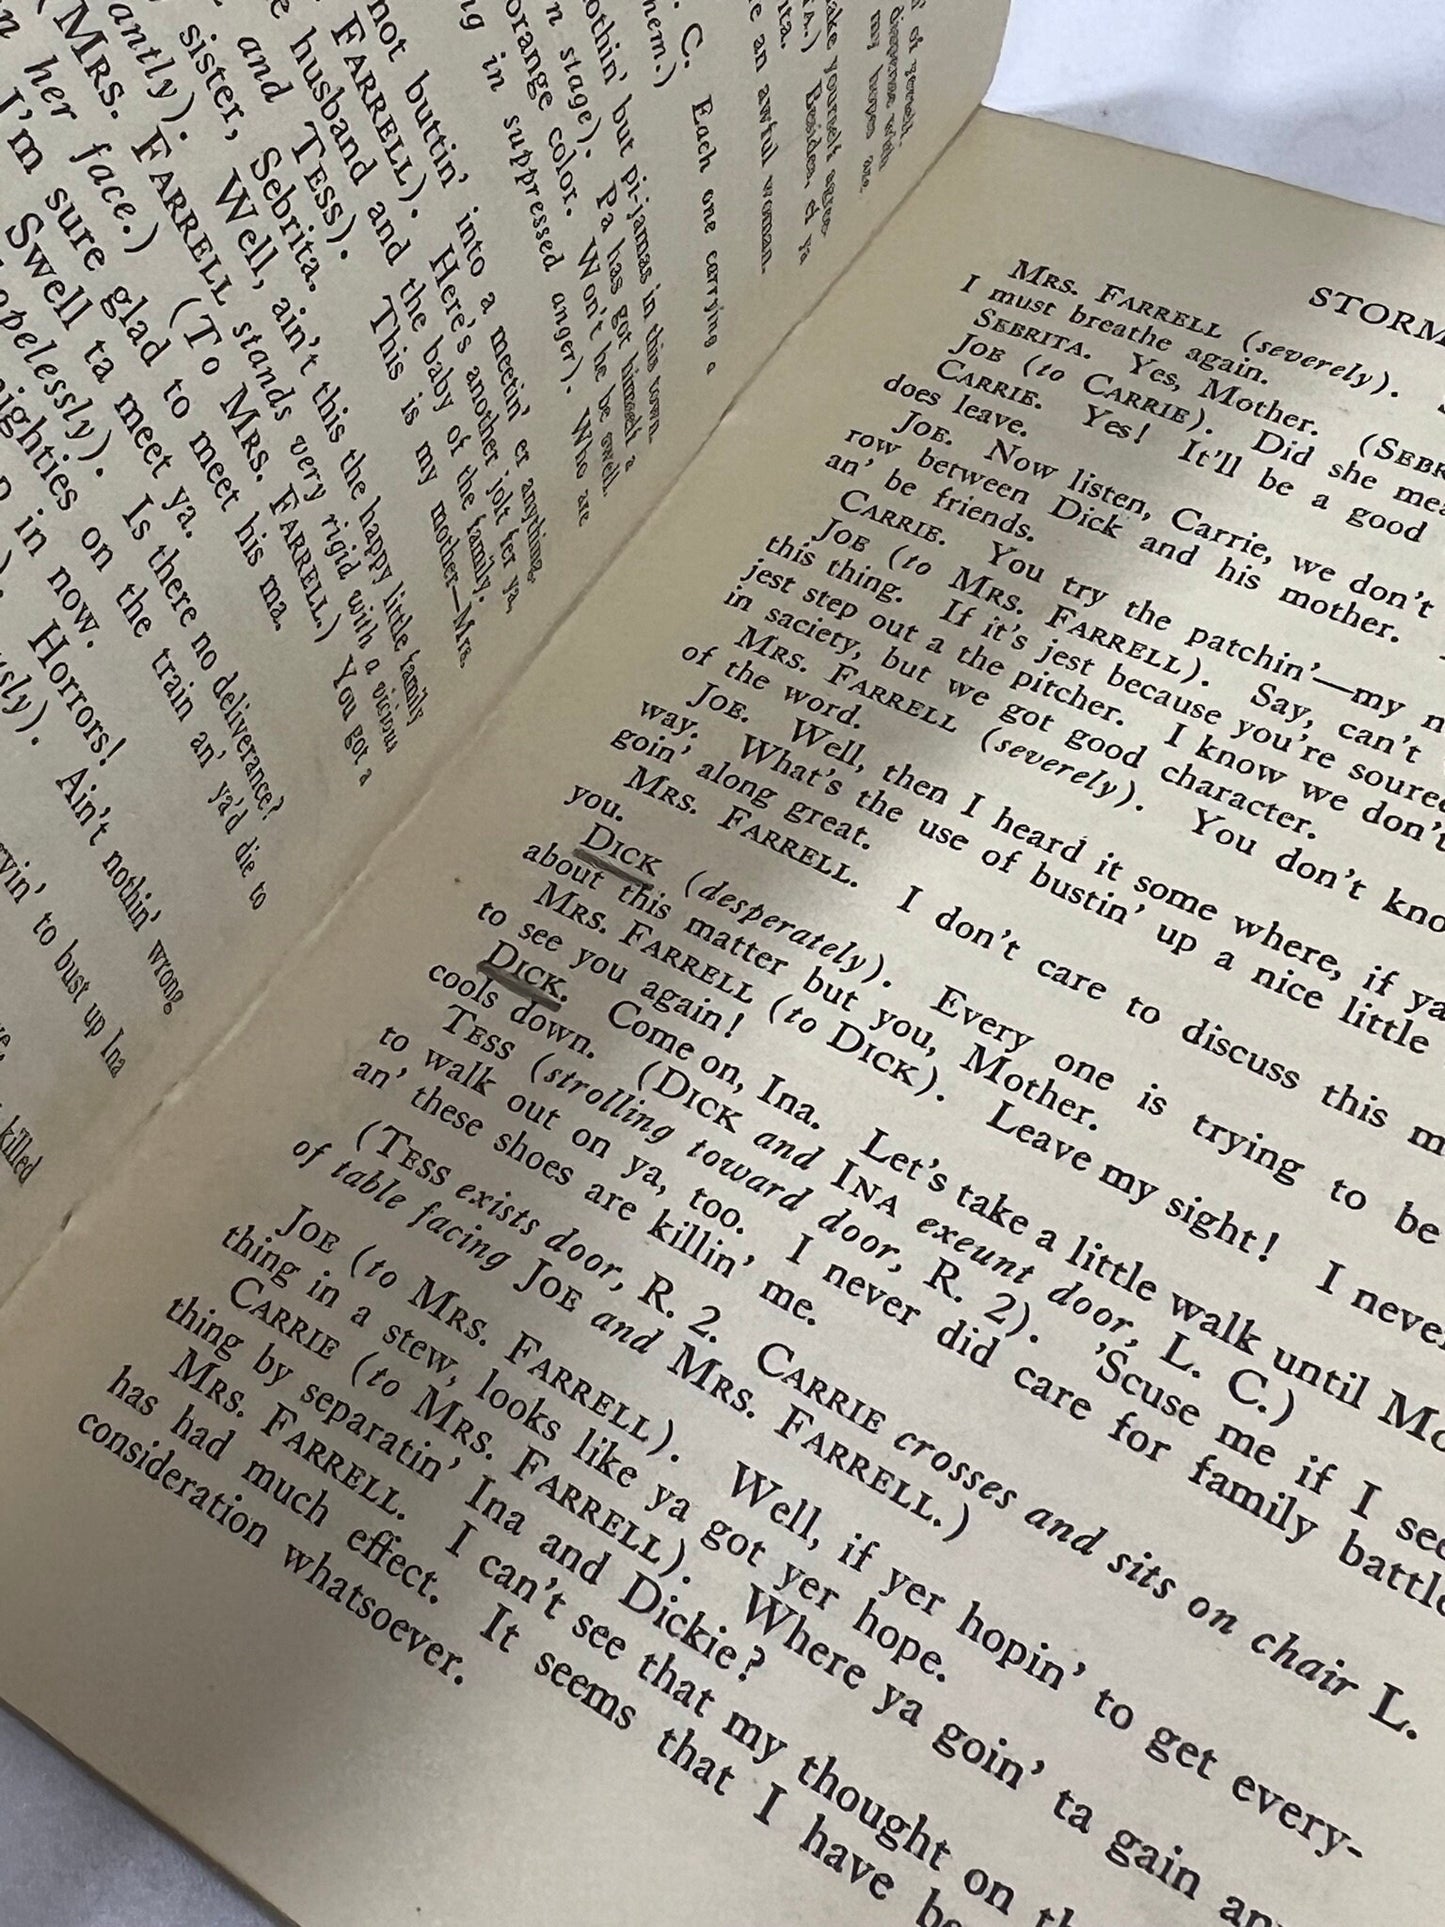 of yerself.
dispense with
my hopes are
ake yourself agree-
A.) Besides, ef ya
e an awful woman.
ita.
. C. Each one carrying a
hem.)
othin' but pi-jamas in this town.
n stage). Pa has got himself a
orange color. Won't he be swell.
ng in suppressed anger). Who are
not buttin' into a meetin' er anything.
FARRELL). Here's another jolt her ya,
e husband and the baby of the family.
and TESS). This is my mother—Mrs.
sister, Sebrita.
antly). Well, ain't this the happy little family
(MRS. FARRELL stands very rigid with a vicious
n her face.) (To MRS. FARRELL.) You got a
I'm sure glad to meet his ma.
Swell ta meet ya.
opelessly). Is there no deliverance?
ighties on the train an' ya'd die to
in now.
Horrors!
sly). Ain't nothin' wrong
ryin' to bust up Ina
killed
STORM
MRS. FARRELL (severely).
I must breathe again.
SEBRITA. Yes, Mother. (SEBR
JOE (to CARRIE). Did she mea
CARRIE. Yes! It'll be a good
does leave.
JOE. Now listen, Carrie, we don't
row between Dick and his mother.
an' be friends.
CARRIE. You try the patchin'—my n
JOE (to MRS. FARRELL). Say, can't
this thing. If it's jest because you're soured
jest step out a the pitcher. I know we don't
in saciety, but we got good character.
MRS. FARRELL (severely). You don't kno
of the word.
JOE. Well, then I heard it some where, if ya
way. What's the use of bustin' up a nice little
goin' along great.
MRS. FARRELL. I don't care to discuss this m
you.
DICK (desperately). Every one is trying to be
about this matter but you, Mother.
MRS. FARRELL (to DICK). Leave my sight! I never
to see you again!
DICK. Come on, Ina. Let's take a little walk until Mo
cools down. (DICK and INA exeunt door, L. C.)
TESS (strolling toward door, R. 2). 'Scuse me if I see
to walk out on ya, too. I never did care for family battle
an' these shoes are killin' me.
(TESS exists door, R. 2. CARRIE crosses and sits on chair L.
of table facing JOE and MRS. FARRELL.)
JOE (to MRS. FARRELL). Well, if yer hopin' to get every-
thing in a stew, looks like ya got yer hope.
CARRIE (to MRS. FARRELL). Where ya goin' ta gain any
thing by separatin' Ina and Dickie?
MRS. FARRELL. I can't see that my thought on th
has had much effect. It seems that I have be
consideration whatsoever.